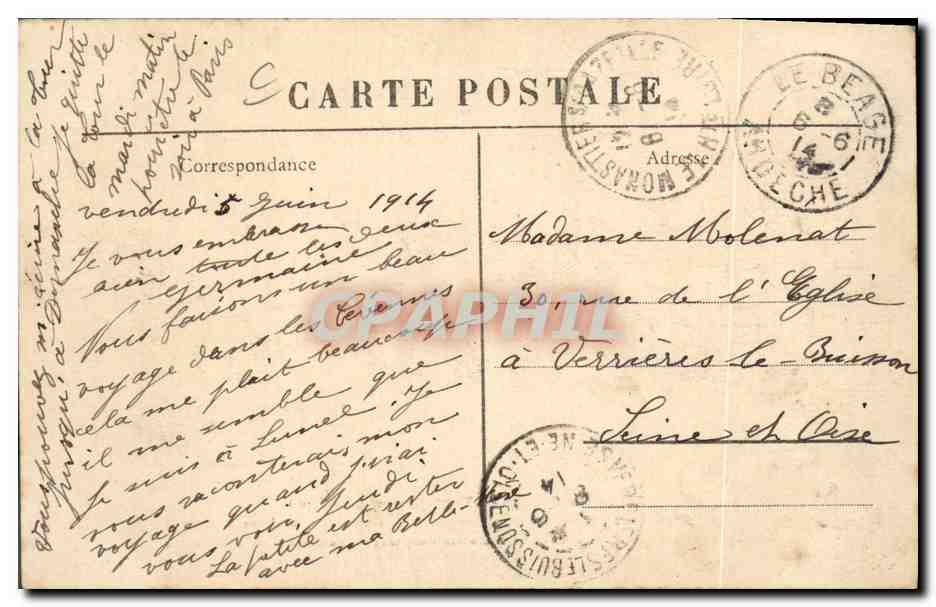 CARTE POSTALE
Correspondance
Adresse
vendredi 5 Juin 1914
Je vous embrasse
ainsi toute les deux
Germaine
Nous faisons un beau
voyage dans les Cevennes
cela me plait beaucoup
il me semble que
je suis à Lunel. Je
vous raconterais mon
voyage quand j'irai
vous voir, Jeudi.
La petite est rester
avec ma Belle-Mère
Vous pouvez m'écrire à la Tour
jusqu'à Dimanche je quitte
la Tour le
mardi matin
pour être le
soir à Paris
Madame Molenat
30, rue de l'Eglise
à Verrières le-Buisson
Seine et Oise
LE BEAGE
8-6
14
ARDECHE
LE MONASTIER
VERRIERES LE BUISSON
SNE-ET-OISE
CPAPHIL